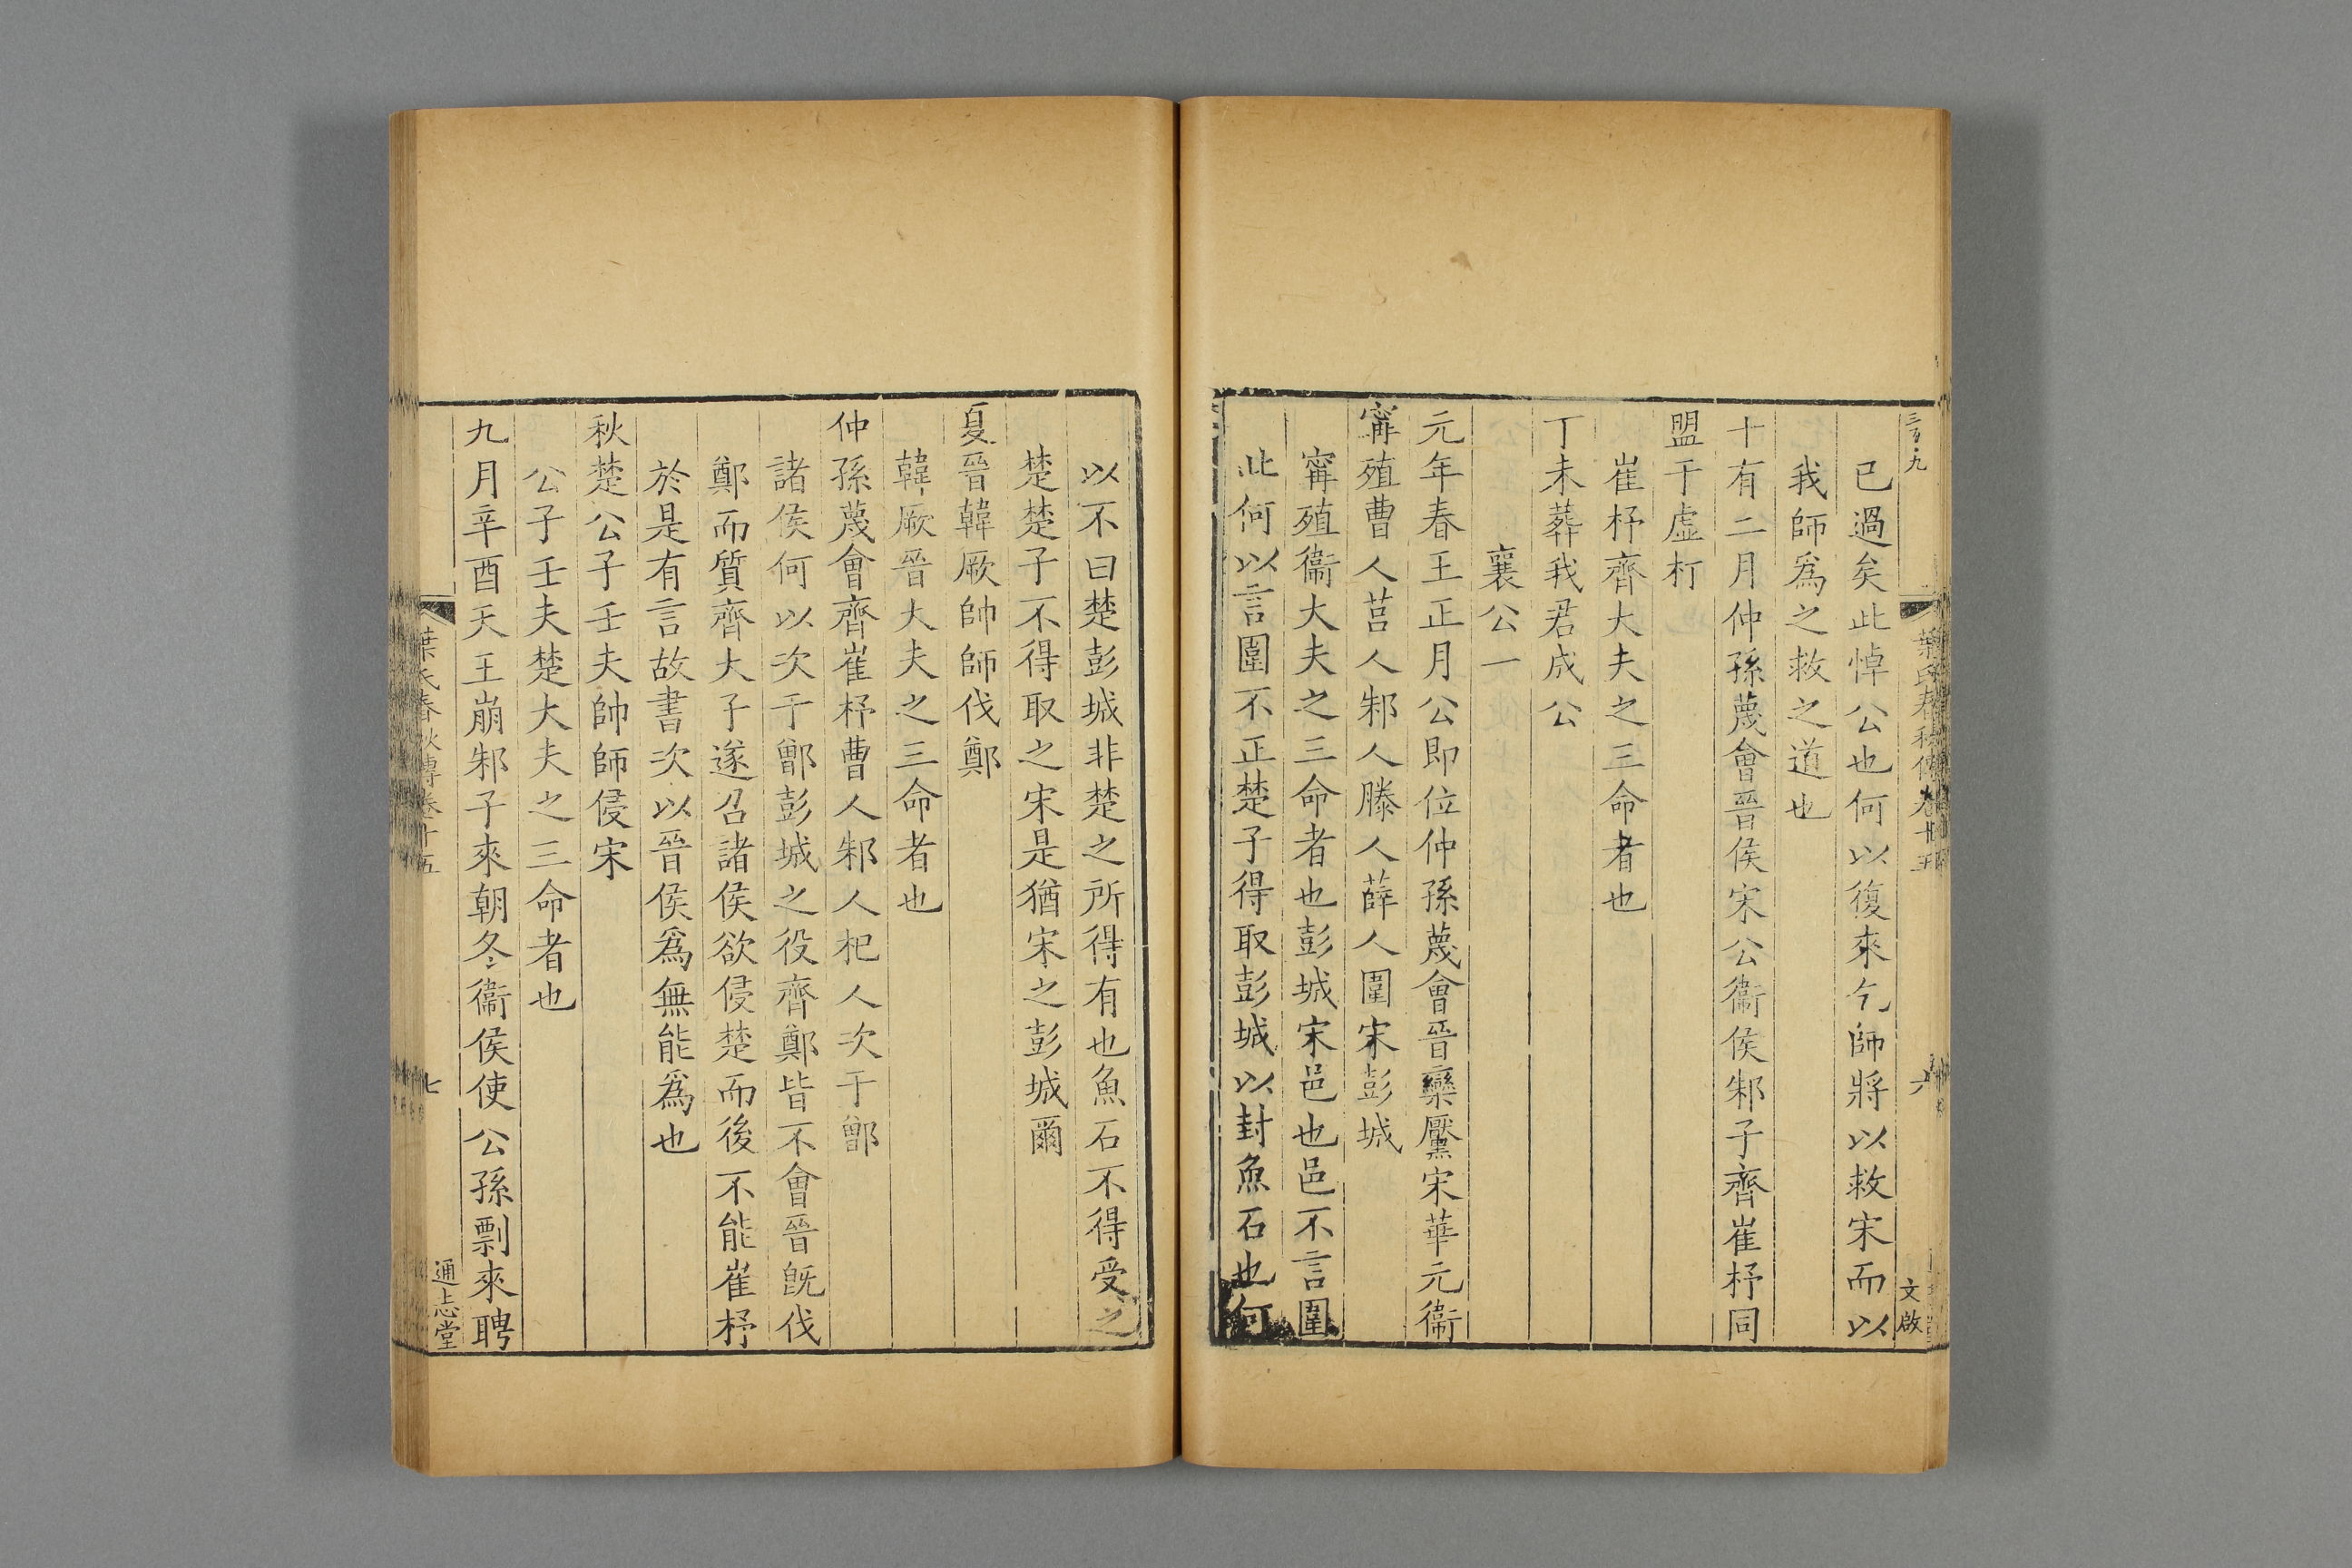 三百九
葉氏春秋傳卷十五
六
文啟
已過矣此悼公也何以復來乞師將以救宋而以
我師爲之救之道也
十有二月仲孫蔑會晉侯宋公衞侯邾子齊崔杼同
盟于虛朾
崔杼齊大夫之三命者也
丁未葬我君成公
襄公一
元年春王正月公即位仲孫蔑會晉欒黶宋華元衞
甯殖曹人莒人邾人滕人薛人圍宋彭城
甯殖衞大夫之三命者也彭城宋邑也邑不言圍
此何以言圍不正楚子得取彭城以封魚石也何
以不曰楚彭城非楚之所得有也魚石不得受之
楚楚子不得取之宋是猶宋之彭城爾
夏晉韓厥帥師伐鄭
韓厥晉大夫之三命者也
仲孫蔑會齊崔杼曹人邾人杞人次于鄫
諸侯何以次于鄫彭城之役齊鄭皆不會晉旣伐
鄭而質齊大子遂召諸侯欲侵楚而後不能崔杼
於是有言故書次以晉侯爲無能爲也
秋楚公子壬夫帥師侵宋
公子壬夫楚大夫之三命者也
九月辛酉天王崩邾子來朝冬衞侯使公孫剽來聘
葉氏春秋傳卷十五
七
通志堂